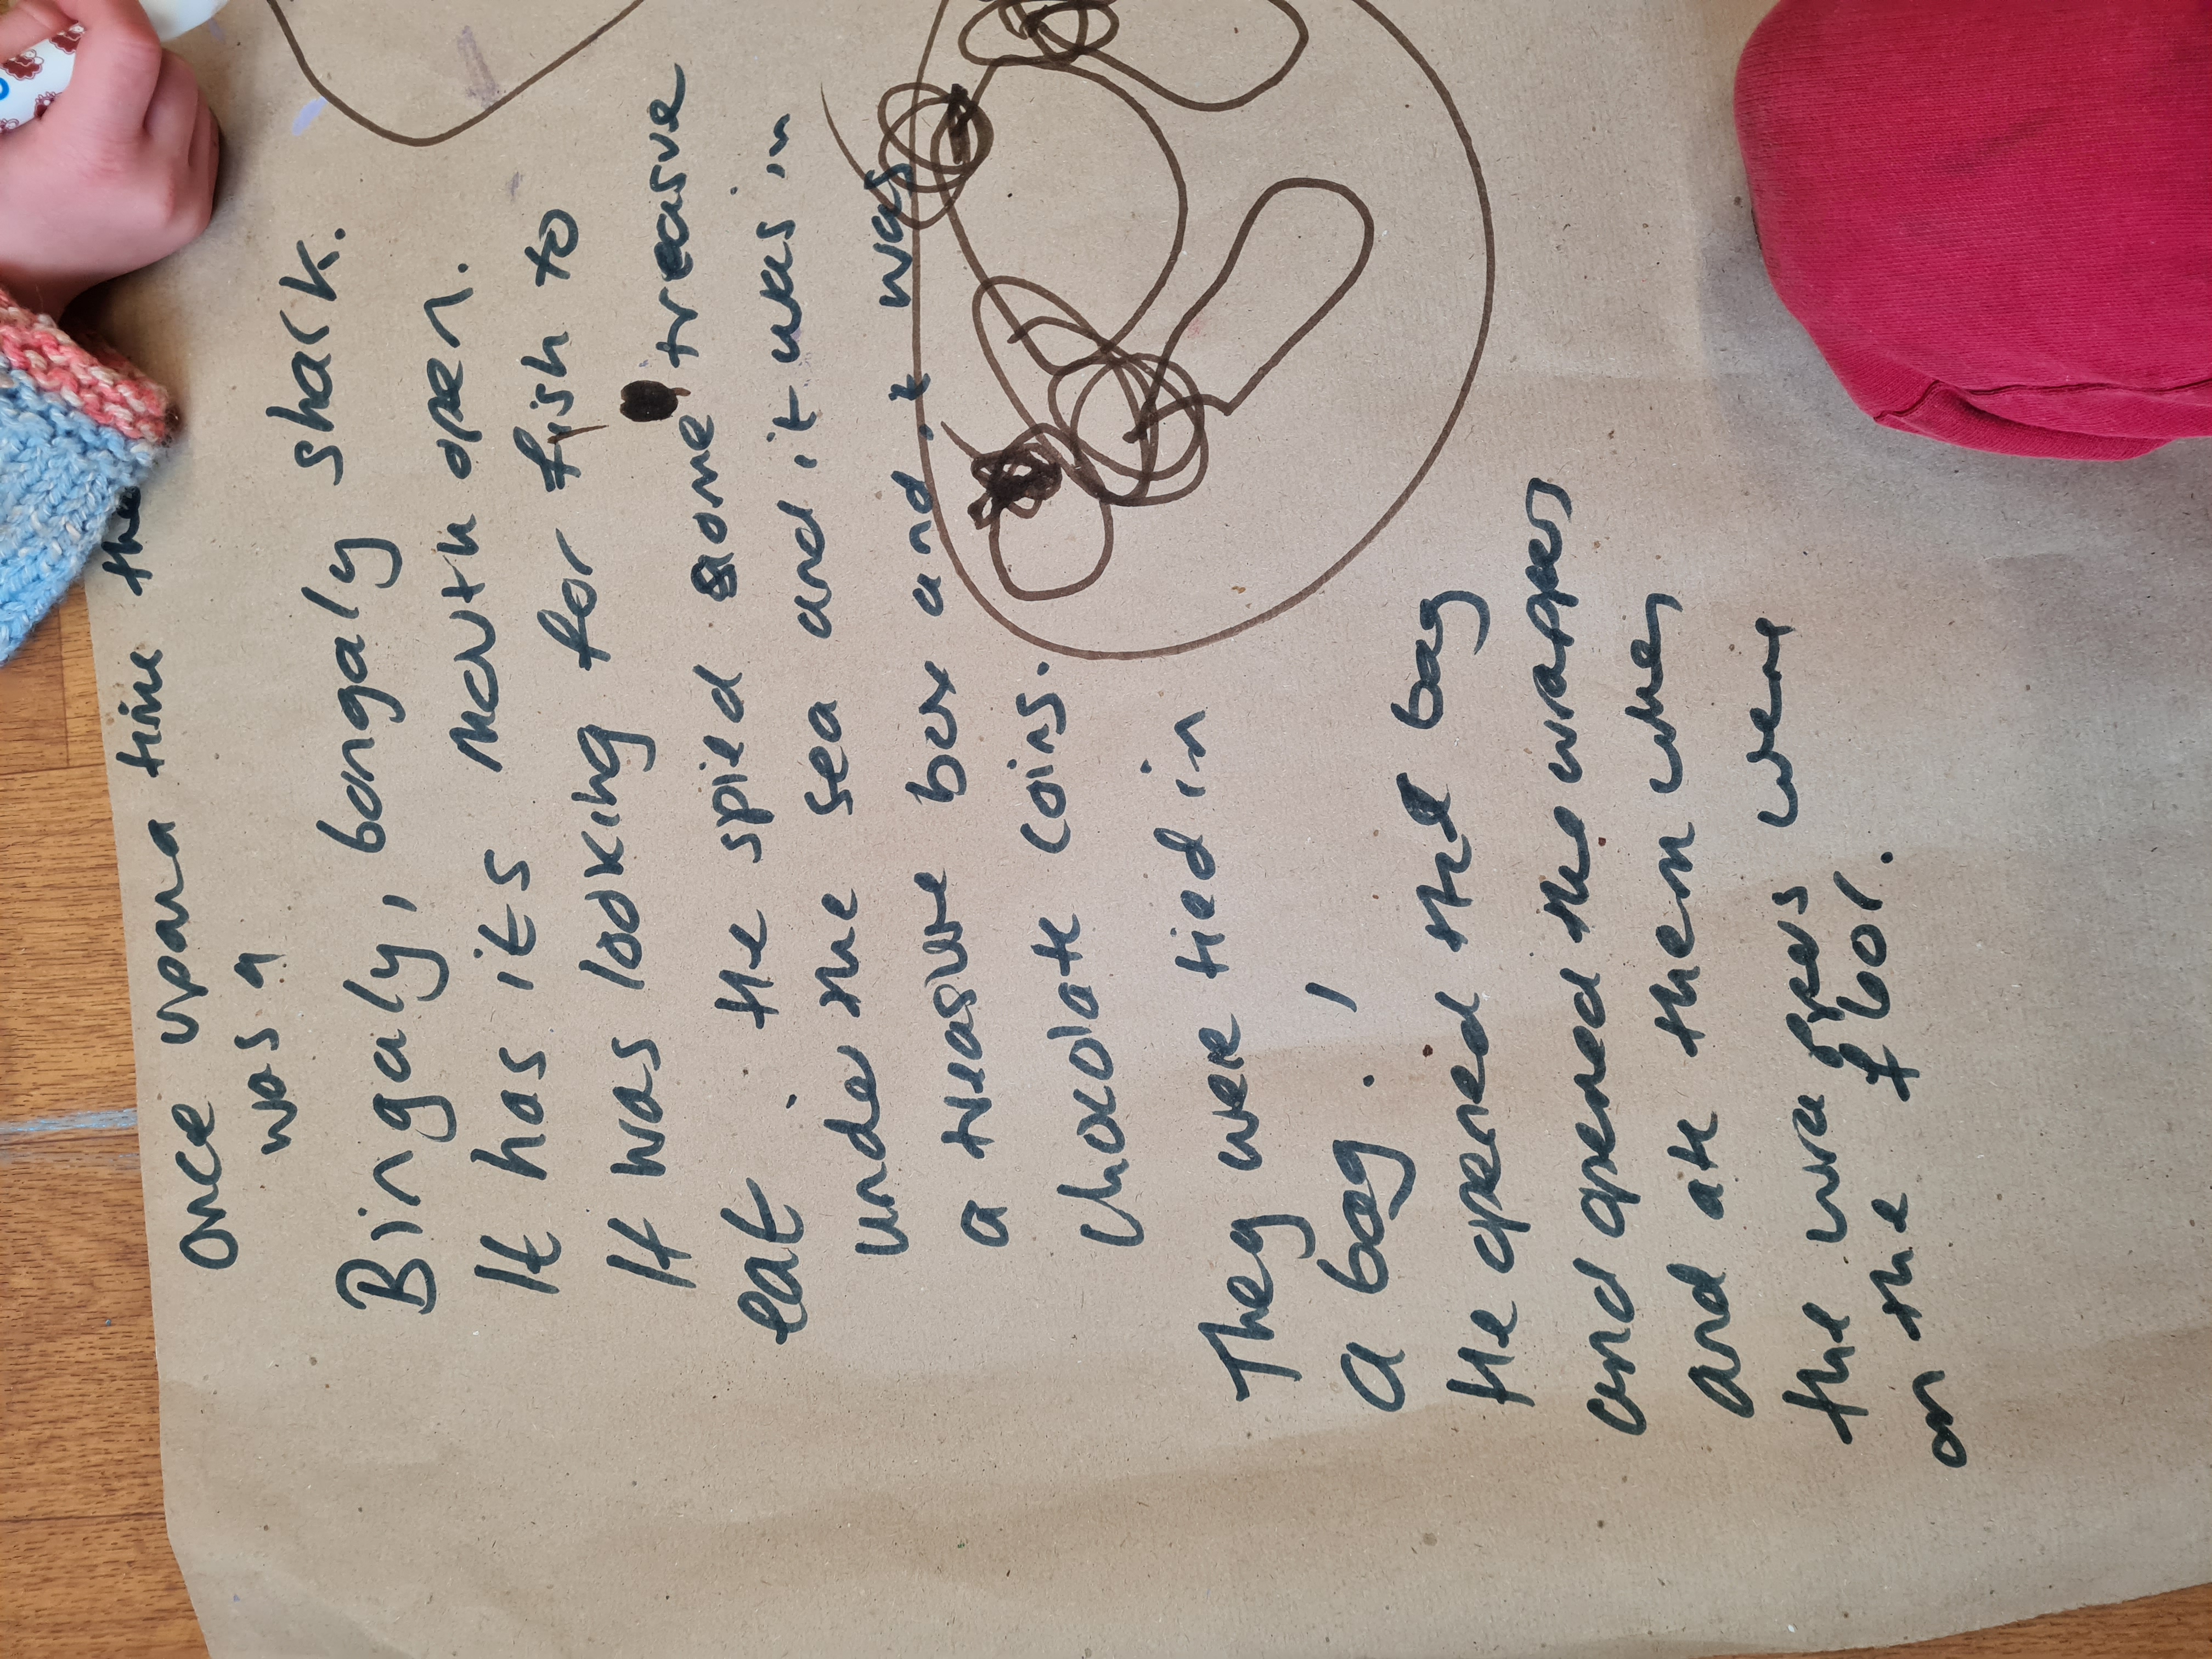 once upona time the
was a
Bingaly, bongaly shark.
It has its mouth open.
It was looking for fish to
eat. He spied some treasure
under the sea and it was in
a treasure box and it was
chocolate coins.
They were tied in
a bag.
He opened the bag
and opened the wrapers
and ate them when
the wrapers were
on the floor.